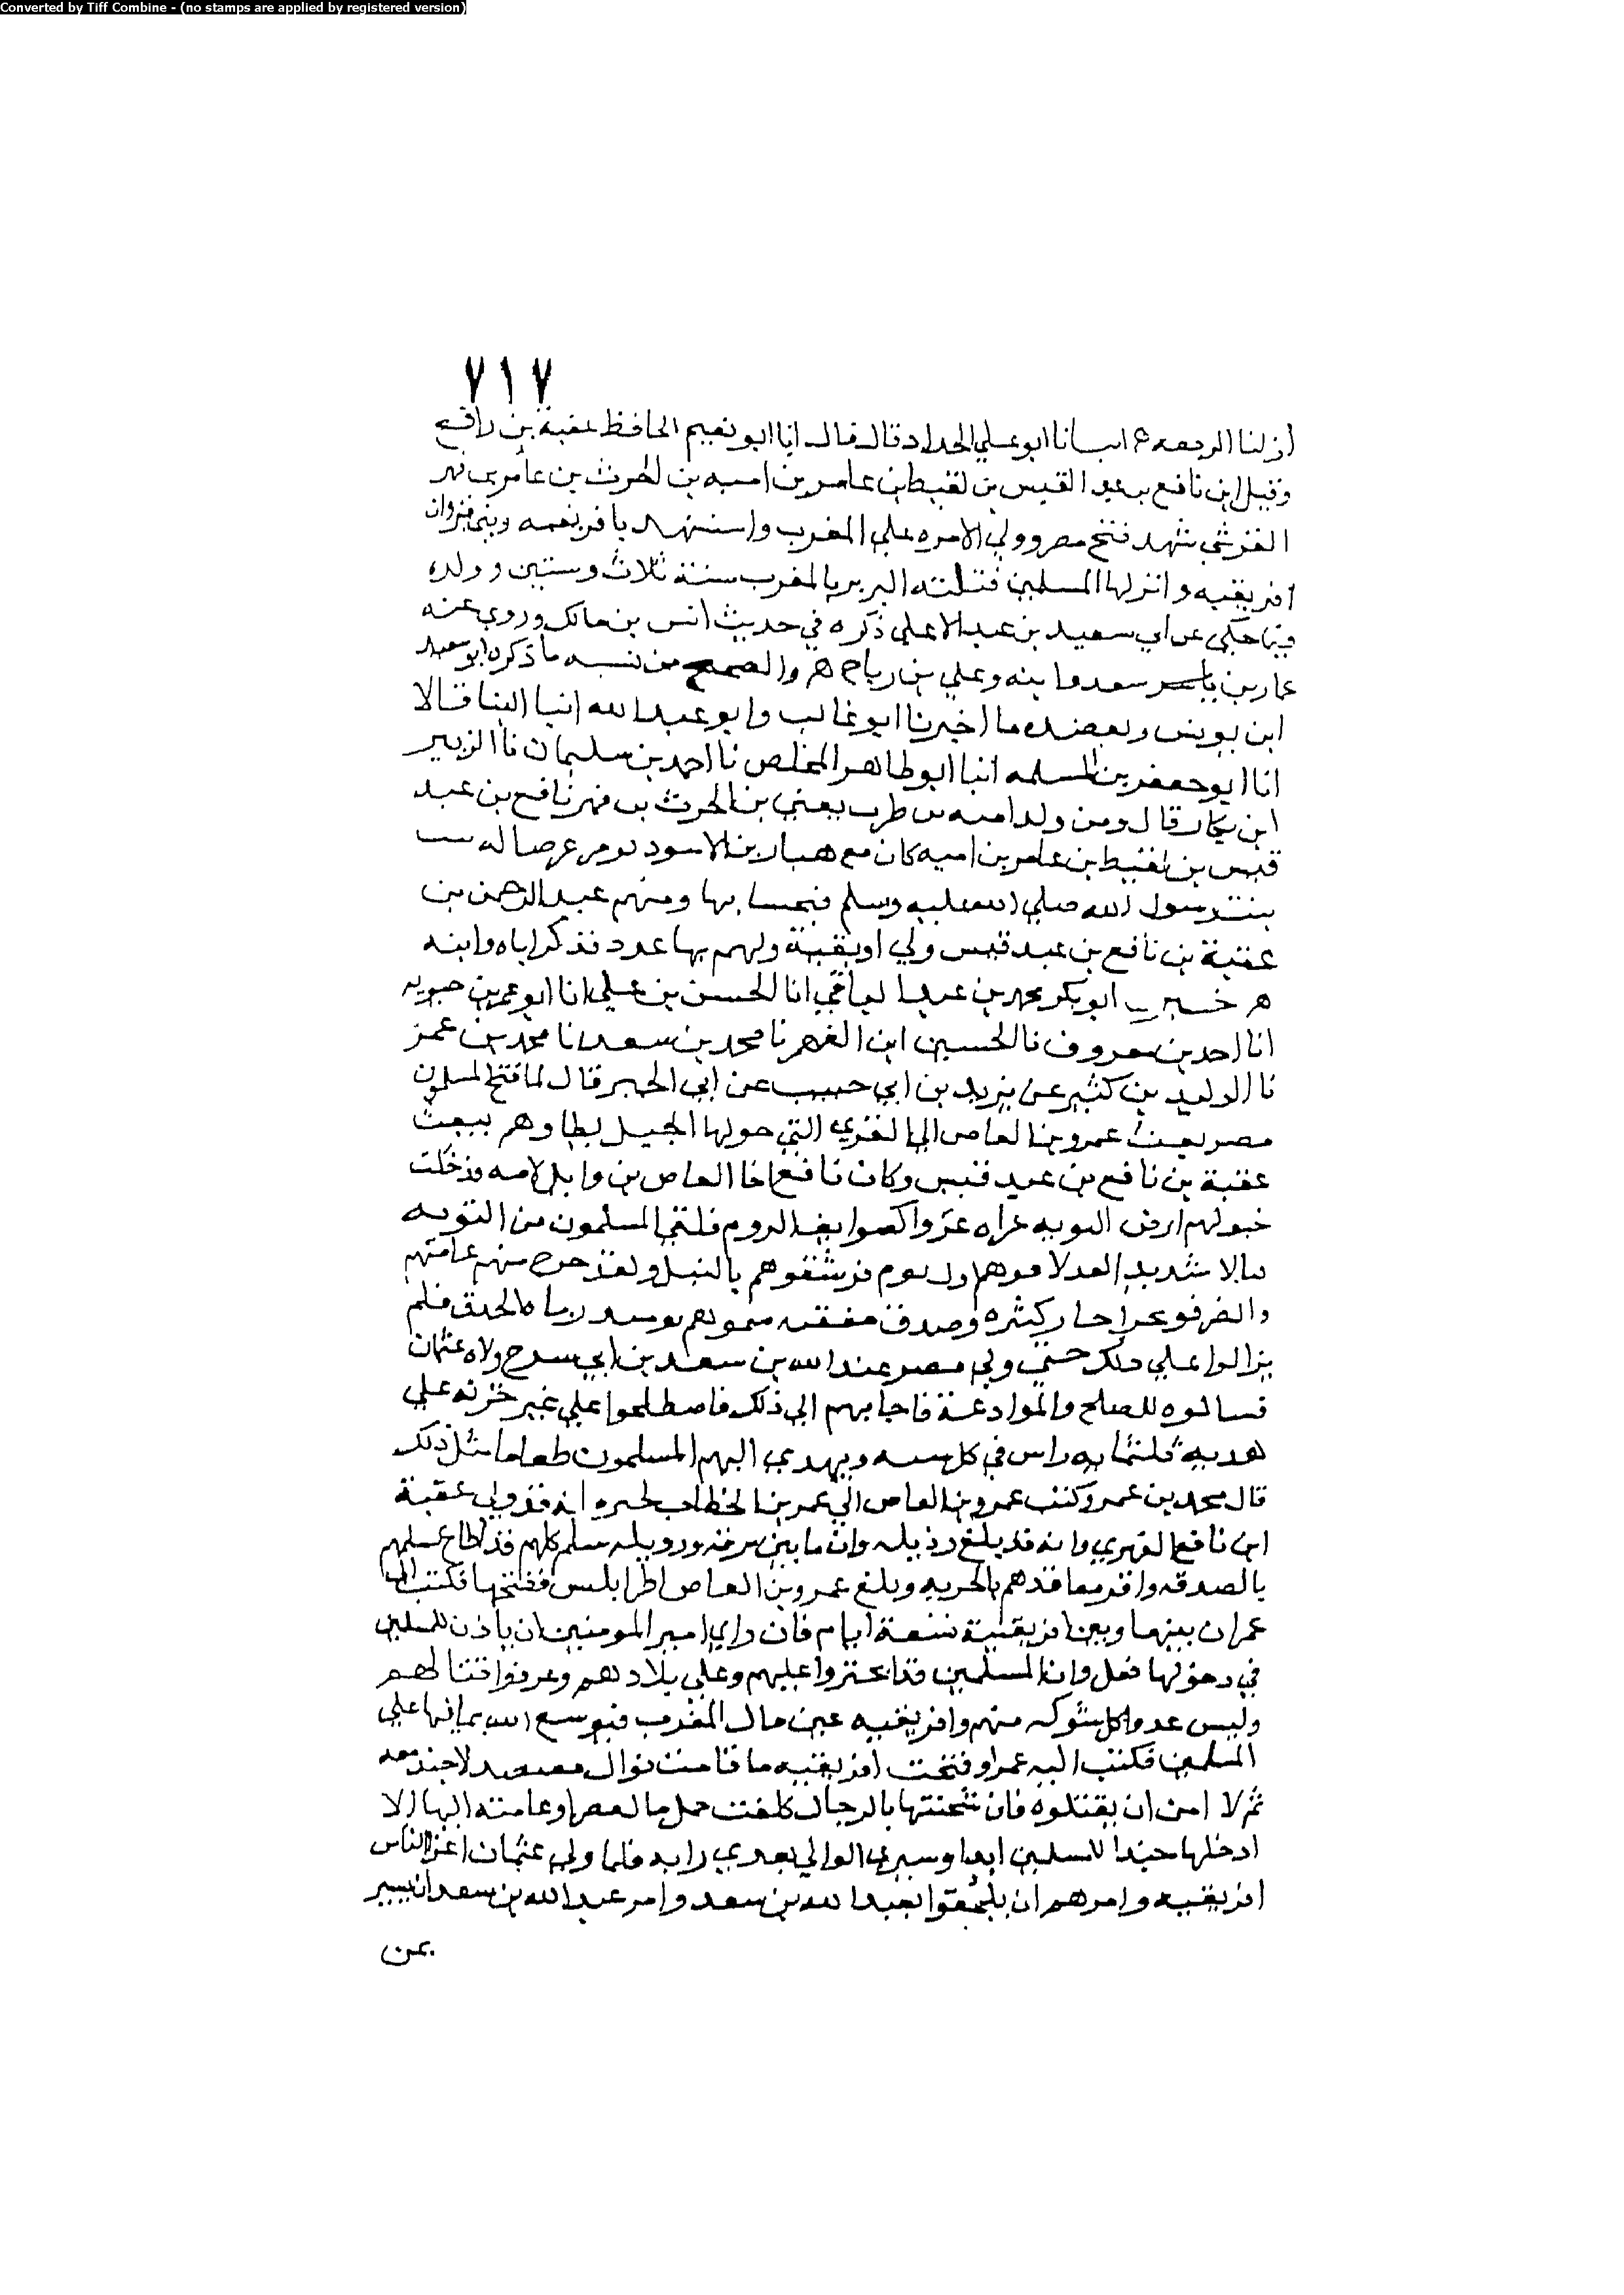 Converted by Tiff Combine - (no stamps are applied by registered version)
٧١٧
ابو علي الحداد قال قال انا ابو نعيم الحافظ عقبة بن رافع
وقيل ابن نافع بن عبد القيس بن لقيط بن عامر بن اميه بن الحرث بن عامر بن فهر
القرشي شهد فتح مصر وولي الامره علي المغرب واستشهد بافريقيه وبني قيروان
افريقيه وانزلها المسلمين قتلته البربر بالمغرب سنة ثلاث وستين وولده
فيما حكى عن ابي سعيد بن عبد الاعلى ذكره في حديث انس بن مالك وروي عنه
عمار بن سعد وابنه وعلي بن رباح هر والصحيح من نسبه ما ذكره ابو سعيد
ابن يونس ويعضده ما اخبرنا ابو غالب وابو عبد الله انبا البنا قالا
انا ابو جعفر بن المسلمه انبا ابو طاهر المخلص نا احمد بن سليمان نا الزبير
ابن بكار قال ومن ولد اميه بن طرب يعني بن الحرث بن فهر نافع بن عبد
قيس بن لقيط بن عامر بن اميه كان مع هبار بن الاسود يوم عرضا
بنت رسول الله صلي الله عليه وسلم فنخسا بها ومنهم عبد الرحمن بن
عقبة بن نافع بن عبد قيس ولي افريقية ولهم بها عدد فذكر اباه وابنه
ابو بكر محمد بن عبد الباقي انا الحسن بن علي انا ابو عمر بن حيويه
انا احمد بن معروف نا الحسين ابن الفهم نا محمد بن سعد نا محمد بن عمر
نا الوليد بن كثير عن يزيد بن ابي حبيب عن ابي الخير قال لما فتح المسلمون
مصر بعث عمرو بن العاص الي القري التي حولها الخيل يطاوهم فبعث
عقبة بن نافع بن عبد قيس وكان نافع اخا العاص بن وايل لامه فدخلت
خيولهم ارض النوبه الروم فلقي المسلمون من النوبه
قتالا شديدا لقد لاقوهم اول يوم فرشقوهم بالنبل ولقد جرح منهم عامتهم
وانصرفوا بجراحات كثيره وحدق
يزالوا علي ذلك حتي ولي مصر عبد الله بن سعد بن ابي سرح ولاه عثمان
فسالوه للصلح والموادعة فاجابهم الي ذلك فاصطلحوا علي غير جزيه علي
هديه ثلثمايه راس في كل سنه ويهدي اليهم المسلمون طعاما مثل ذلك
قال محمد بن عمر وكتب عمرو بن العاص الي عمر بن الخطاب يخبره انه قد ولي عقبة
ابن نافع الفهري وانه قد بلغ زويله وان ما بين برقه وزويله سلم كلهم قد اطاع مسلمهم
بالصدقه واقر معاهدهم بالجزيه وبلغ عمرو بن العاص اطرابلس ففتحها فكتب الي
عمر ان بينها وبين افريقية تسعة ايام فان راي امير المومنين ان ياذن للمسلمين
في دخولها فعل وان المسلمين قد اجتروا عليهم وعلي بلادهم وعرفوا قتالهم
وليس عدو اكل شوكه منهم وافريقيه عين مال المغرب فيوسع الله بما فيها علي
المسلمين فكتب اليه عمر لو فتحت افريقيه ما قامت بوال مقتصد لا جند معه
ثم لا امن ان يقتلوه فان شحنتها بالرجال كلفت حمل مال مصر او عامته اليها لا
ادخلها جندا للمسلمين ابدا وسيري الوالي بعدي رايه فلما ولي عثمان اغزا الناس
افريقيه وامرهم ان يلحقوا بعبد الله بن سعد وامر عبد الله بن سعد ان يسير
بمن